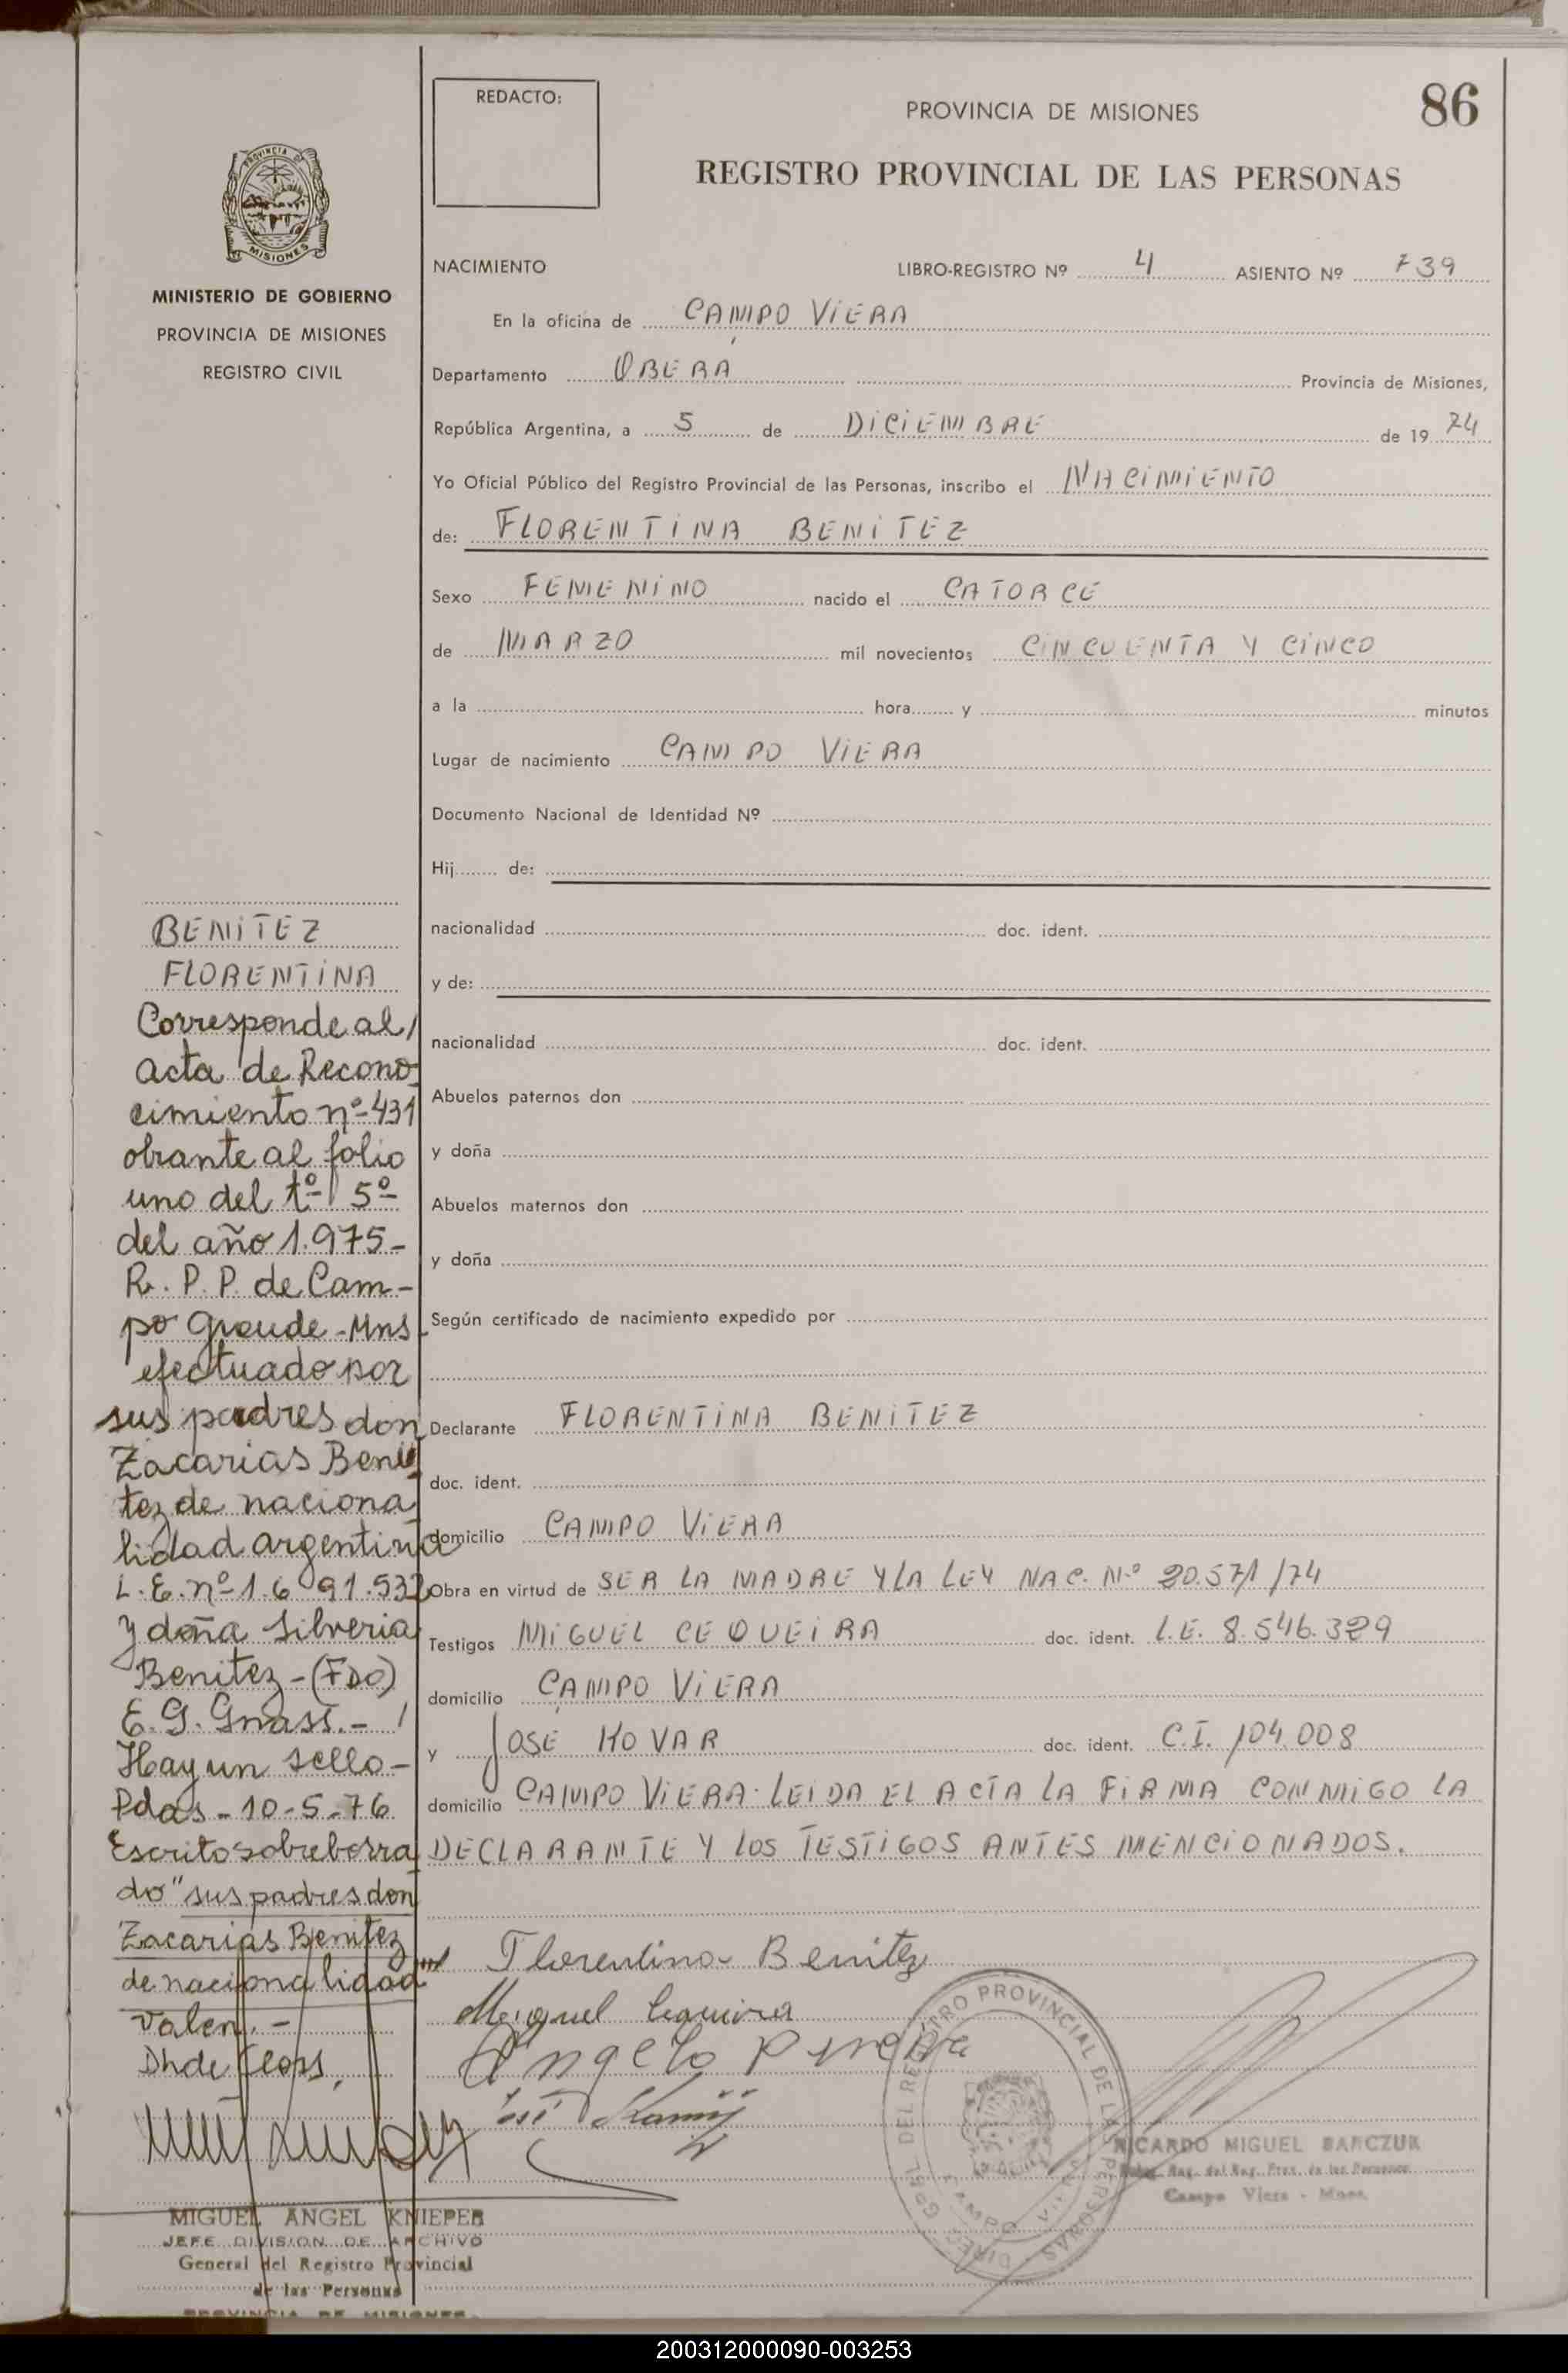 REDACTO:
PROVINCIA DE MISIONES
86
REGISTRO PROVINCIAL DE LAS PERSONAS
PROVINCIA DE
MISIONES
MINISTERIO DE GOBIERNO
PROVINCIA DE MISIONES
REGISTRO CIVIL
NACIMIENTO LIBRO-REGISTRO Nº 4 ASIENTO Nº 739
En la oficina de CAMPO VIERA
Departamento OBERÁ Provincia de Misiones,
República Argentina, a 5 de DICIEMBRE de 19 74
Yo Oficial Público del Registro Provincial de las Personas, inscribo el NACIMIENTO
de: FLORENTINA BENITEZ
Sexo FEMENINO nacido el CATORCE
de MARZO mil novecientos CINCUENTA Y CINCO
a la hora y minutos
Lugar de nacimiento CAMPO VIERA
Documento Nacional de Identidad Nº
Hij de:
nacionalidad doc. ident.
y de:
nacionalidad doc. ident.
Abuelos paternos don
y doña
Abuelos maternos don
y doña
Según certificado de nacimiento expedido por
Declarante FLORENTINA BENITEZ
doc. ident.
domicilio CAMPO VIERA
Obra en virtud de SER LA MADRE Y LA LEY NAC. Nº 20.571/74
Testigos MIGUEL CEQUEIRA doc. ident. L.E. 8.546.329
domicilio CAMPO VIERA
y JOSÉ KOVAR doc. ident. C.I. 104.008
domicilio CAMPO VIERA. LEIDA EL ACTA LA FIRMA CONMIGO LA
DECLARANTE Y LOS TESTIGOS ANTES MENCIONADOS.
Florentina Benitez
Miguel
BENITEZ
FLORENTINA
Corresponde al/
acta de Recono-
cimiento nº 431
obrante al folio
uno del tº 5º
del año 1.975-
R. P. P. de Cam-
po Grande - Mns
efectuado por
sus padres don
Zacarias Beni-
tez de naciona-
lidad argentina
L.E. nº 1.691.532
y doña Silveria
Benitez - (FDO)
E. G. Gnass. - /
Hay un sello -
Pdas - 10-5-76
Escrito sobreborra-
do "sus padres don
Zacarias Benitez
de nacionalidad"
valen. -
MIGUEL ANGEL KNIEPER
JEFE DIVISION DE ARCHIVO
General del Registro Provincial
de las Personas
PROVINCIA DE MISIONES
REGISTRO PROVINCIAL DE LAS PERSONAS
RICARDO MIGUEL BARCZUK
Campo Viera - Mnes.
200312000090-003253